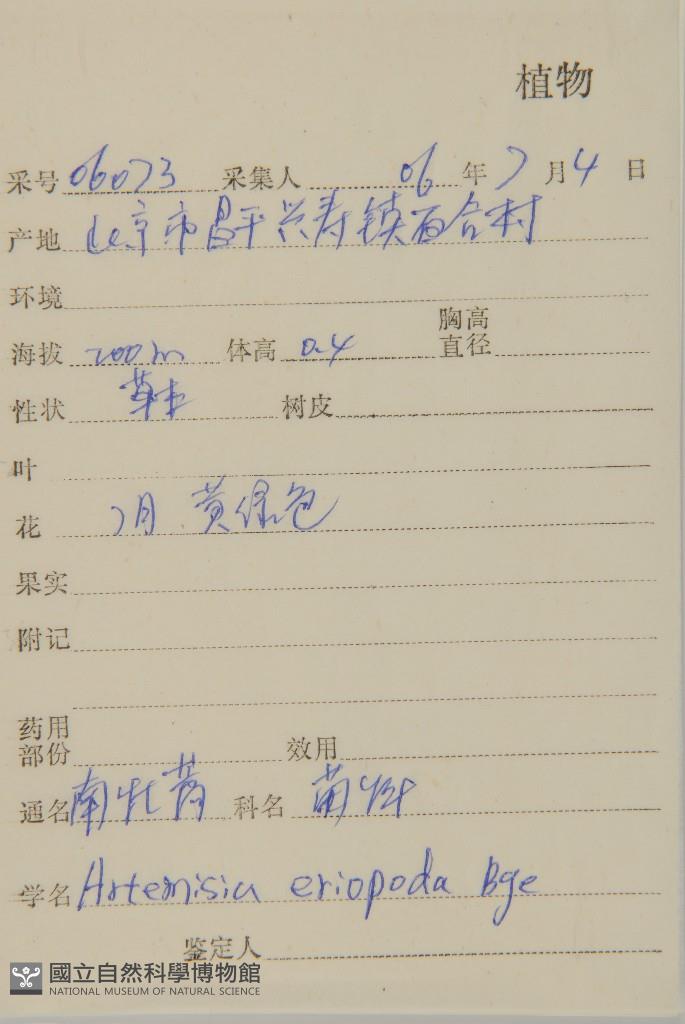 植物
采号 06073 采集人 06 年 7 月 4 日
产地 北京市昌平兴寿镇百合村
环境
海拔 200m 体高 0.4 胸高直径
性状 草本 树皮
叶
花 7月 黄绿色
果实
附记
药用部份 效用
通名 南牡蒿 科名 菊科
学名 Artemisia eriopoda Bge
鉴定人
國立自然科學博物館
NATIONAL MUSEUM OF NATURAL SCIENCE